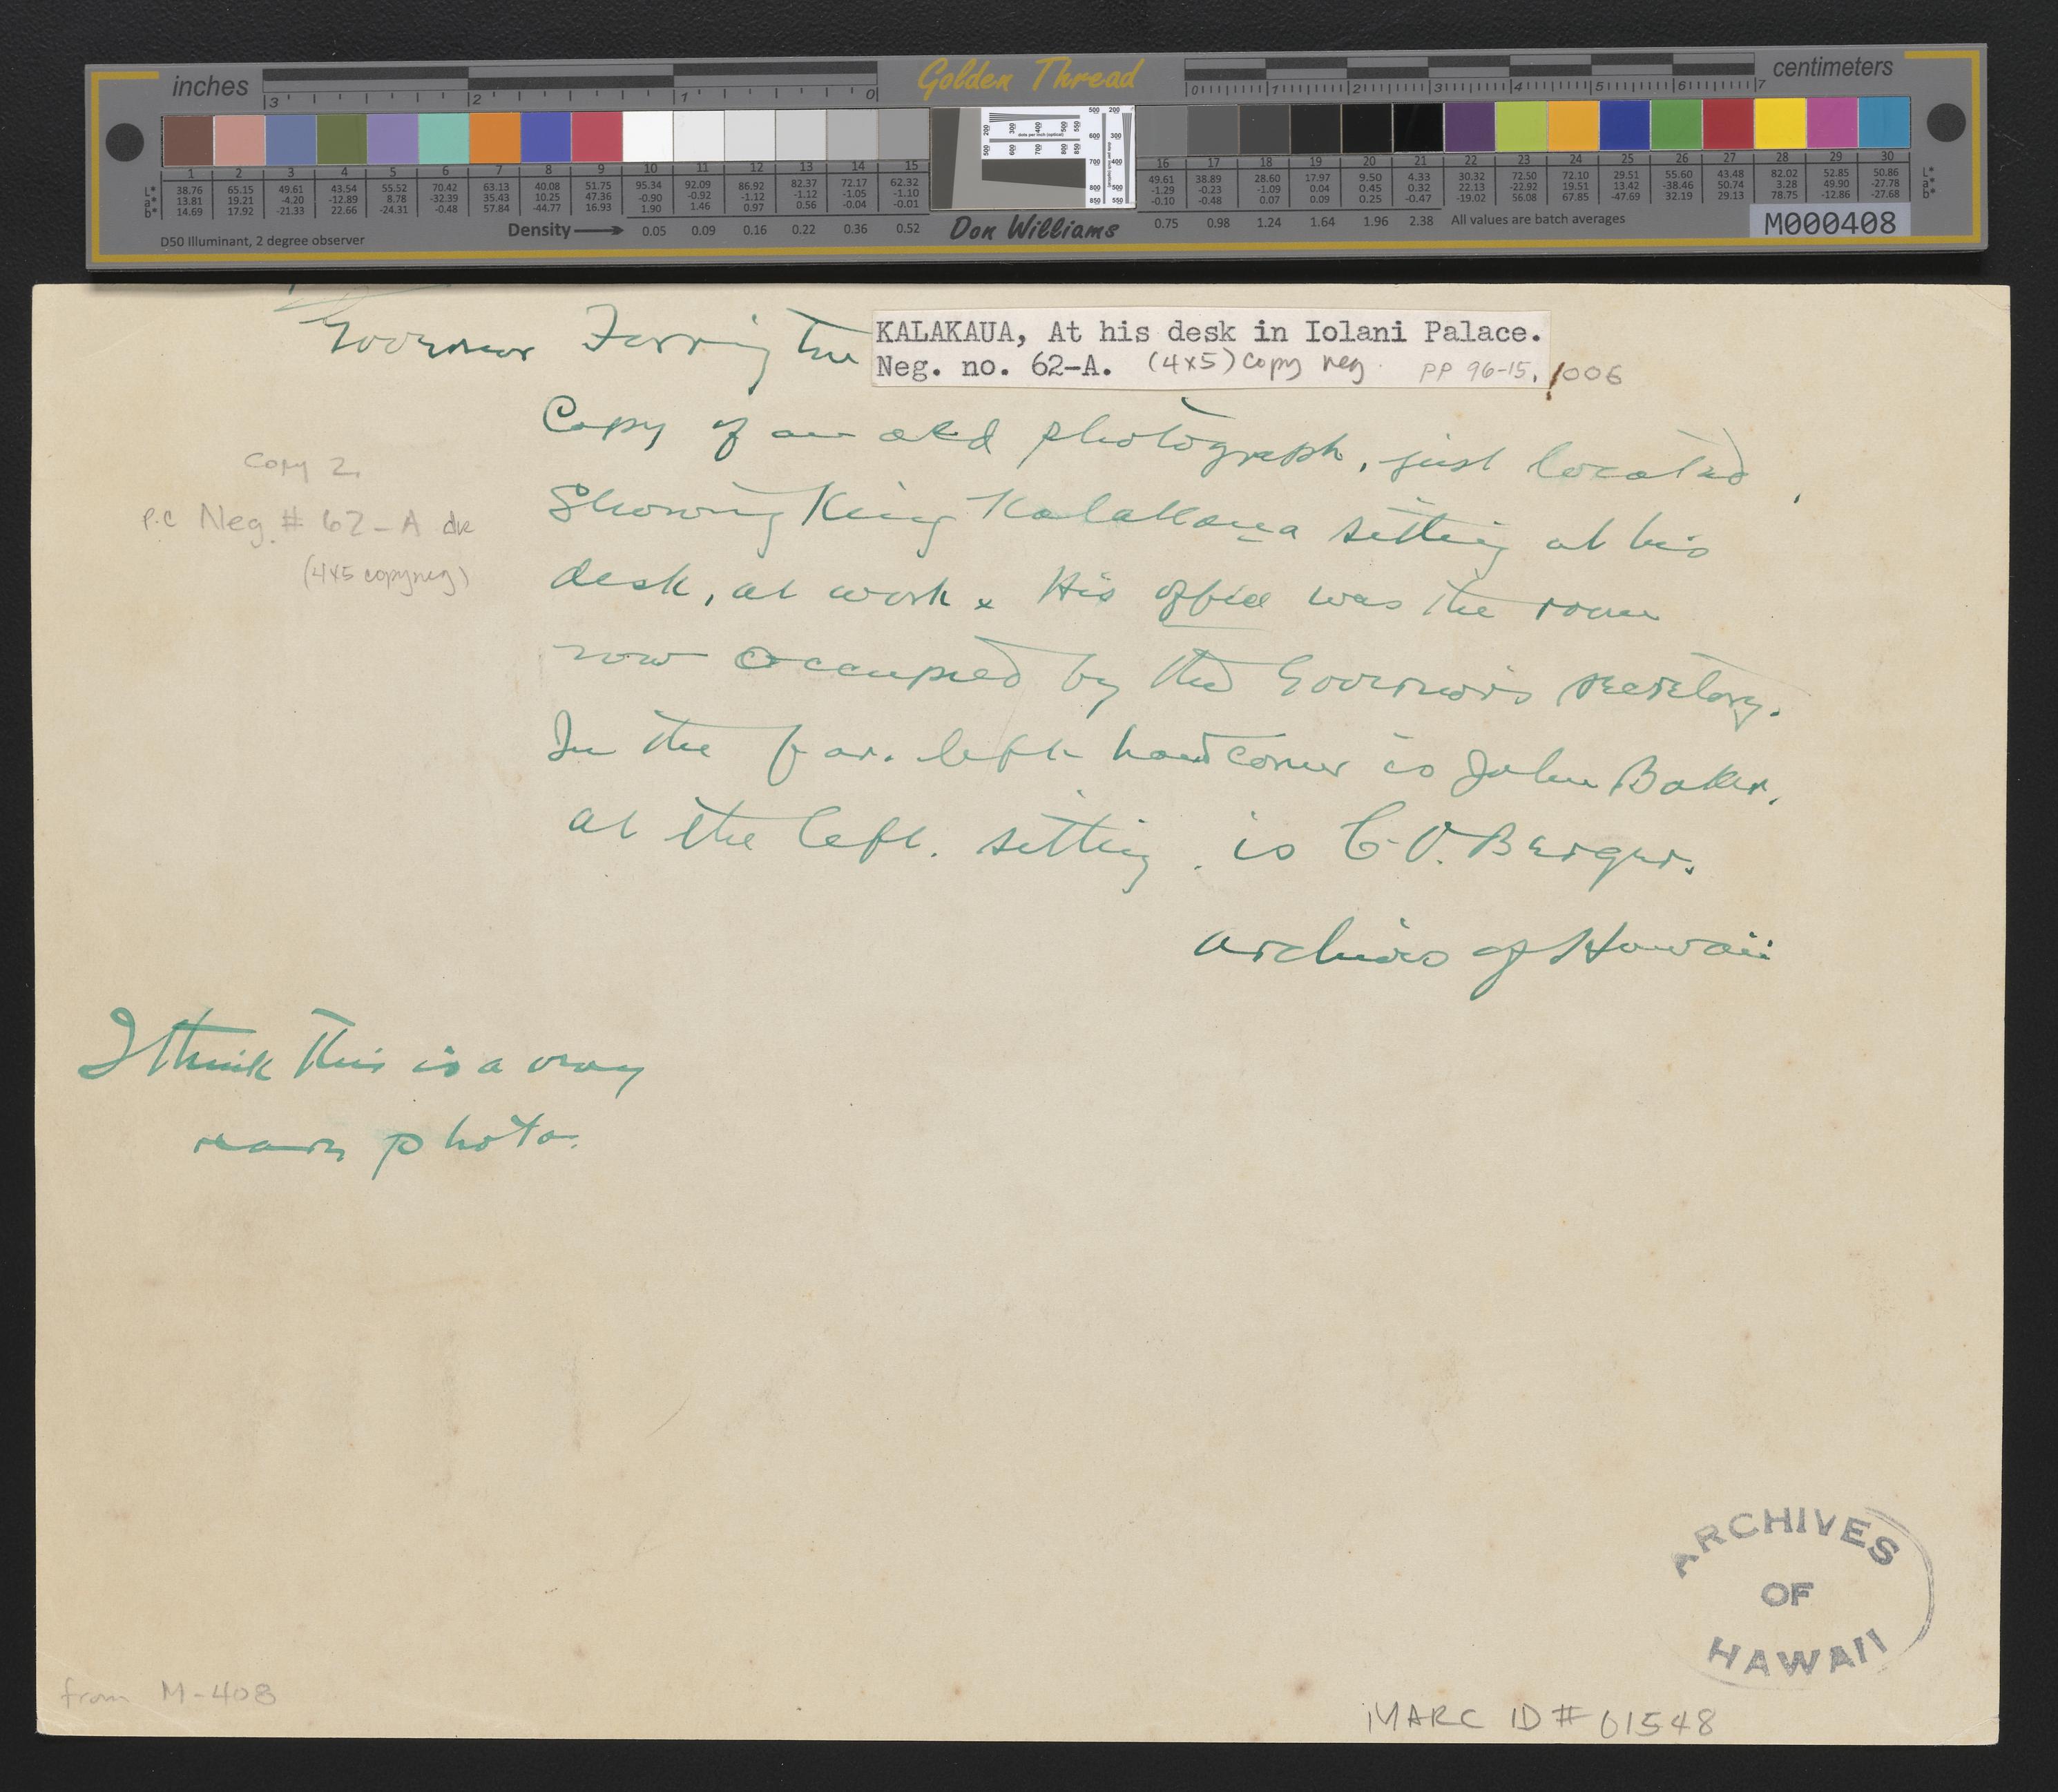 inches
3 2 1 0
Golden Thread
0 1 2 3 4 5 6 7
centimeters
1 2 3 4 5 6 7 8 9 10 11 12 13 14 15
16 17 18 19 20 21 22 23 24 25 26 27 28 29 30
L* 38.76 65.15 49.61 43.54 55.52 70.42 63.13 40.08 51.75 95.34 92.09 86.92 82.37 72.17 62.32
a* 13.81 19.21 -4.20 -12.89 8.78 -32.39 35.43 10.25 47.36 -0.90 -0.92 -1.12 -1.12 -1.05 -1.10
b* 14.69 17.92 -21.33 22.66 -24.31 -0.48 57.84 -44.77 16.93 1.90 1.46 0.97 0.56 -0.04 -0.01
49.61 38.89 28.60 17.97 9.50 4.33 30.32 72.50 72.10 29.51 55.60 43.48 82.02 52.85 50.86 L*
-1.29 -0.23 -1.09 0.04 0.45 0.32 22.13 -22.92 19.51 13.42 -38.46 50.74 3.28 49.90 -27.78 a*
-0.10 -0.48 0.07 0.09 0.25 -0.47 -19.02 56.08 67.85 -47.69 32.19 29.13 78.75 -12.86 -27.68 b*
D50 Illuminant, 2 degree observer
Density 0.05 0.09 0.16 0.22 0.36 0.52
Don Williams
0.75 0.98 1.24 1.64 1.96 2.38 All values are batch averages
M000408
Governor Farrington
KALAKAUA, At his desk in Iolani Palace.
Neg. no. 62-A. (4x5) copy neg. PP 96-15, 1006
Copy of an old photograph, just located,
Showing King Kalakaua sitting at his
desk, at work x His office was the room
now occupied by the Governor's secretary.
In the far. left hand corner is John Baker,
at the left. sitting. is C.V. Berger.
Archives of Hawaii
Copy 2
P.C Neg. # 62-A dk
(4x5 copyneg)
I think this is a very
rare photo.
ARCHIVES
OF
HAWAII
from M-408
MARC ID # 01548